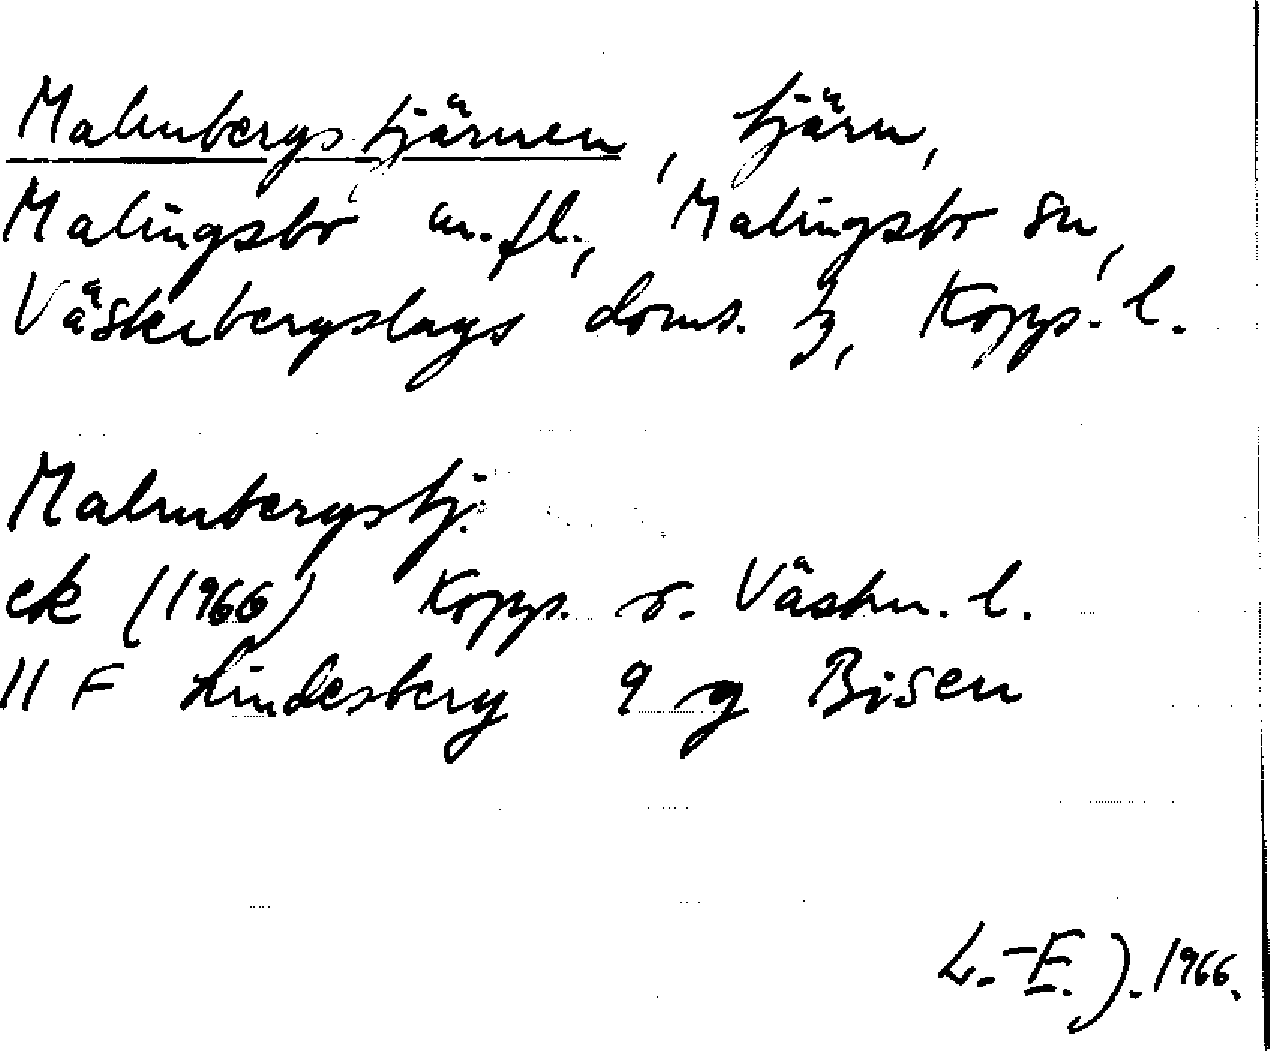 Malmbergstjärnen, tjärn,
Malingsbo m.fl., Malingsbo sn,
Västerbergslags doms. h, Kopp. l.
Malmbergstj.
ek (1966) Kopp. o. Västm. l.
11 F Lindesberg 9 g Bisen
L.-E. J. 1966.